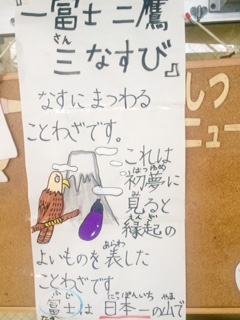 『一富士 二鷹
三なすび』
さん
なすにまつわる
ことわざです。
これは
はつゆめ
初夢に
見ると
えんぎ
縁起の
あらわ
よいものを表した
ことわざです。
ふじ にっぽんいち やま
富士は 日本一の山で
しつ
ニュー